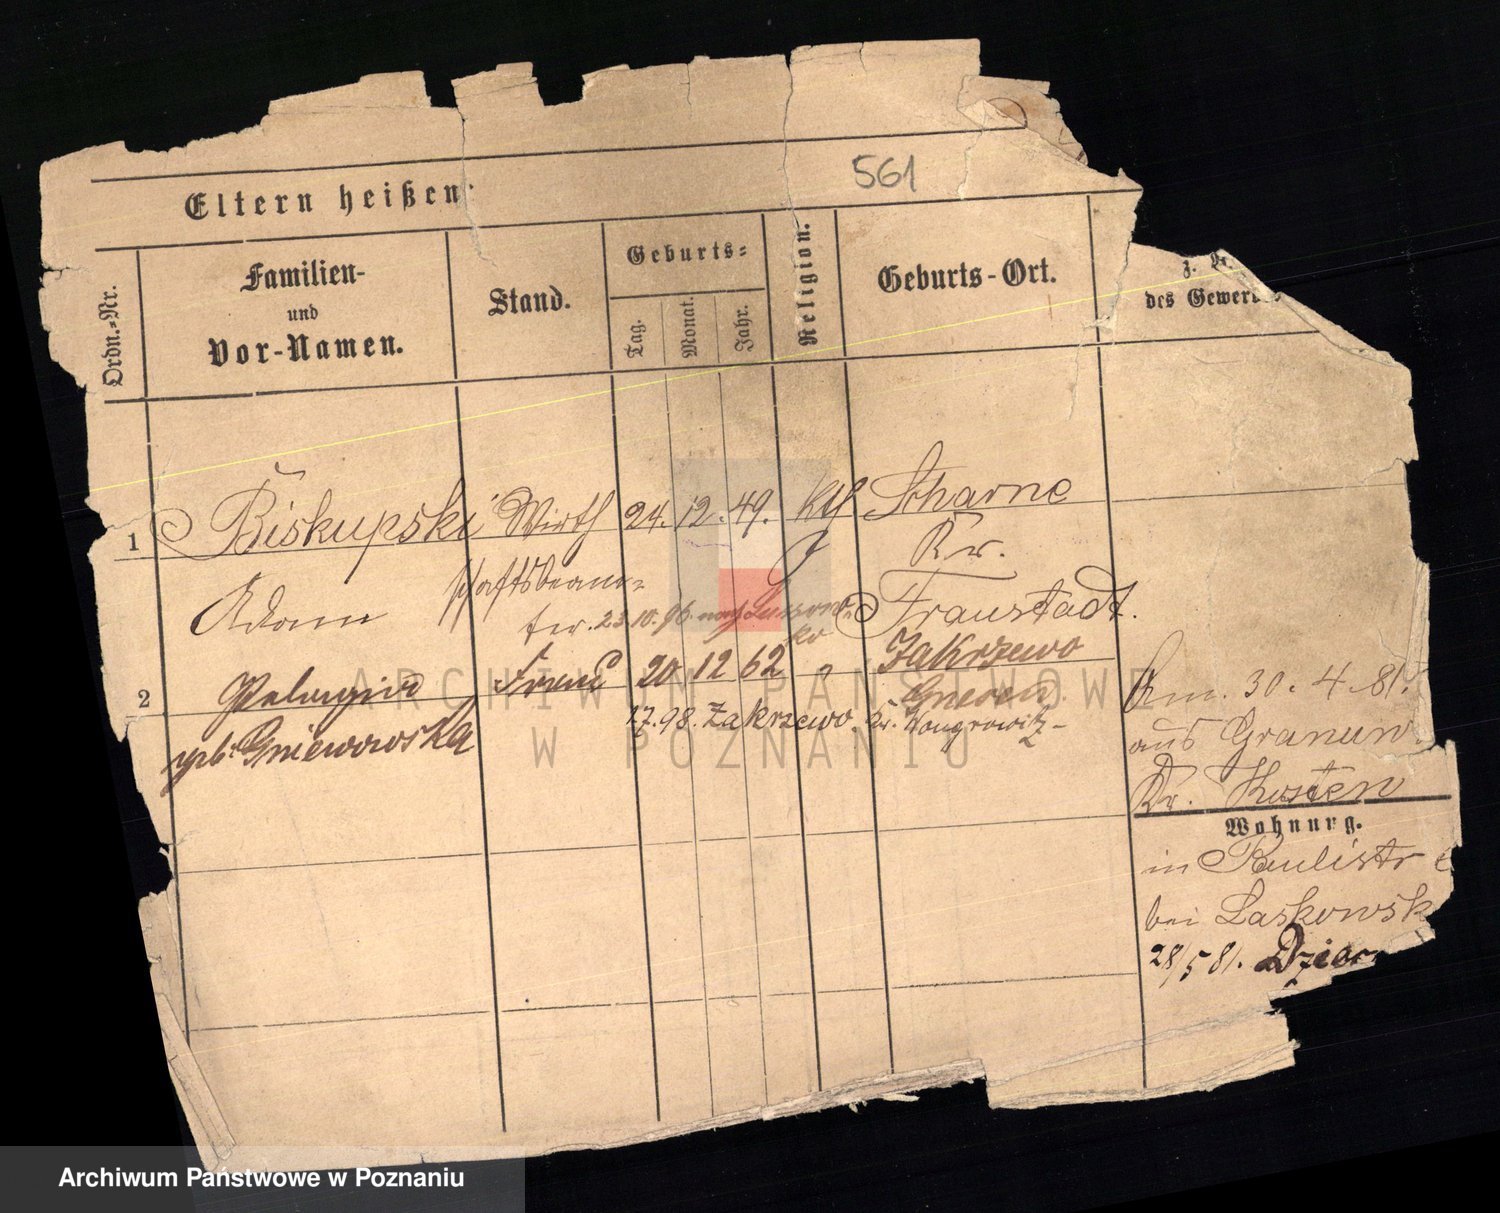 561
Eltern heißen:
Ordn.-Nr.
Familien-
und
Vor-Namen.
Stand.
Geburts-
Tag.
Monat.
Jahr.
Religion.
Geburts-Ort.
des Gewer
1 Biskupski Wirth 24. 12. 49. kth Scharne
Kr.
Adam schaftsbeam-
ter. 23.10.96. nach Fraustadt.
2 Pelagia Frau 20 12 62 Zakrzewo
Gnesen
geb. Gniewowska 1.7.98. Zakrzewo. Kr. Wongrowitz-
Am. 30. 4. 81.
aus Granow.
Kr. Kosten
Wohnung.
in
bei Laskowsk
28/5 81.
ARCHIWUM PAŃSTWOWE
W POZNANIU
Archiwum Państwowe w Poznaniu